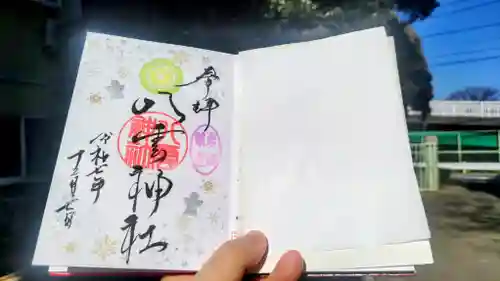 奉拝
八雲神社
令和七年
十二月七日